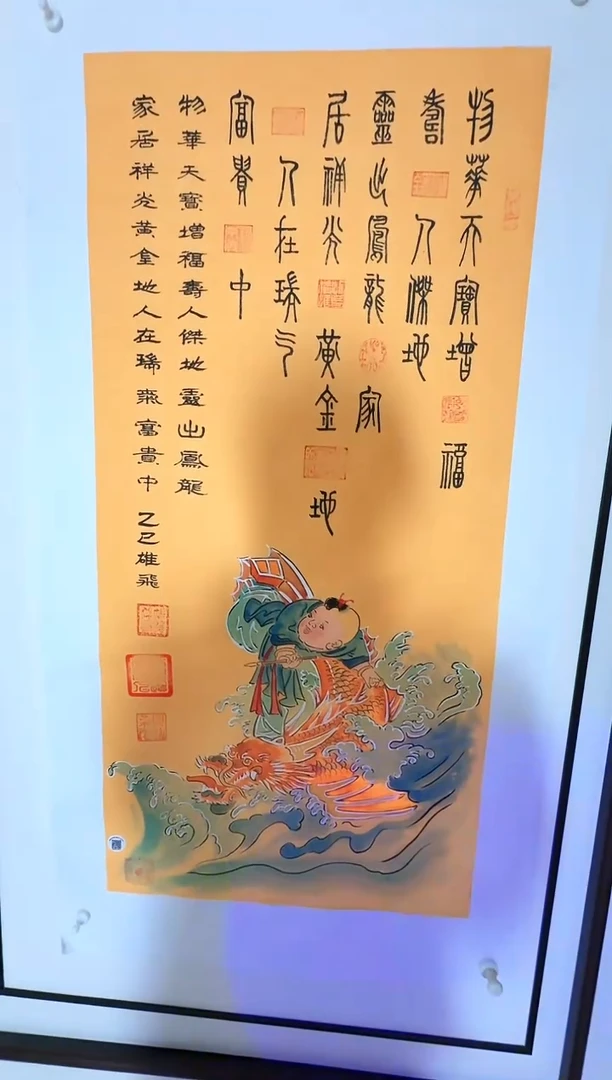 物華天寶增福
壽人傑地
靈出鳳龍家
居祥光黃金地
人在瑞气
富貴中
物華天寶增福壽人傑地靈出鳳龍
家居祥光黃金地人在瑞氣富貴中 乙巳雄飛